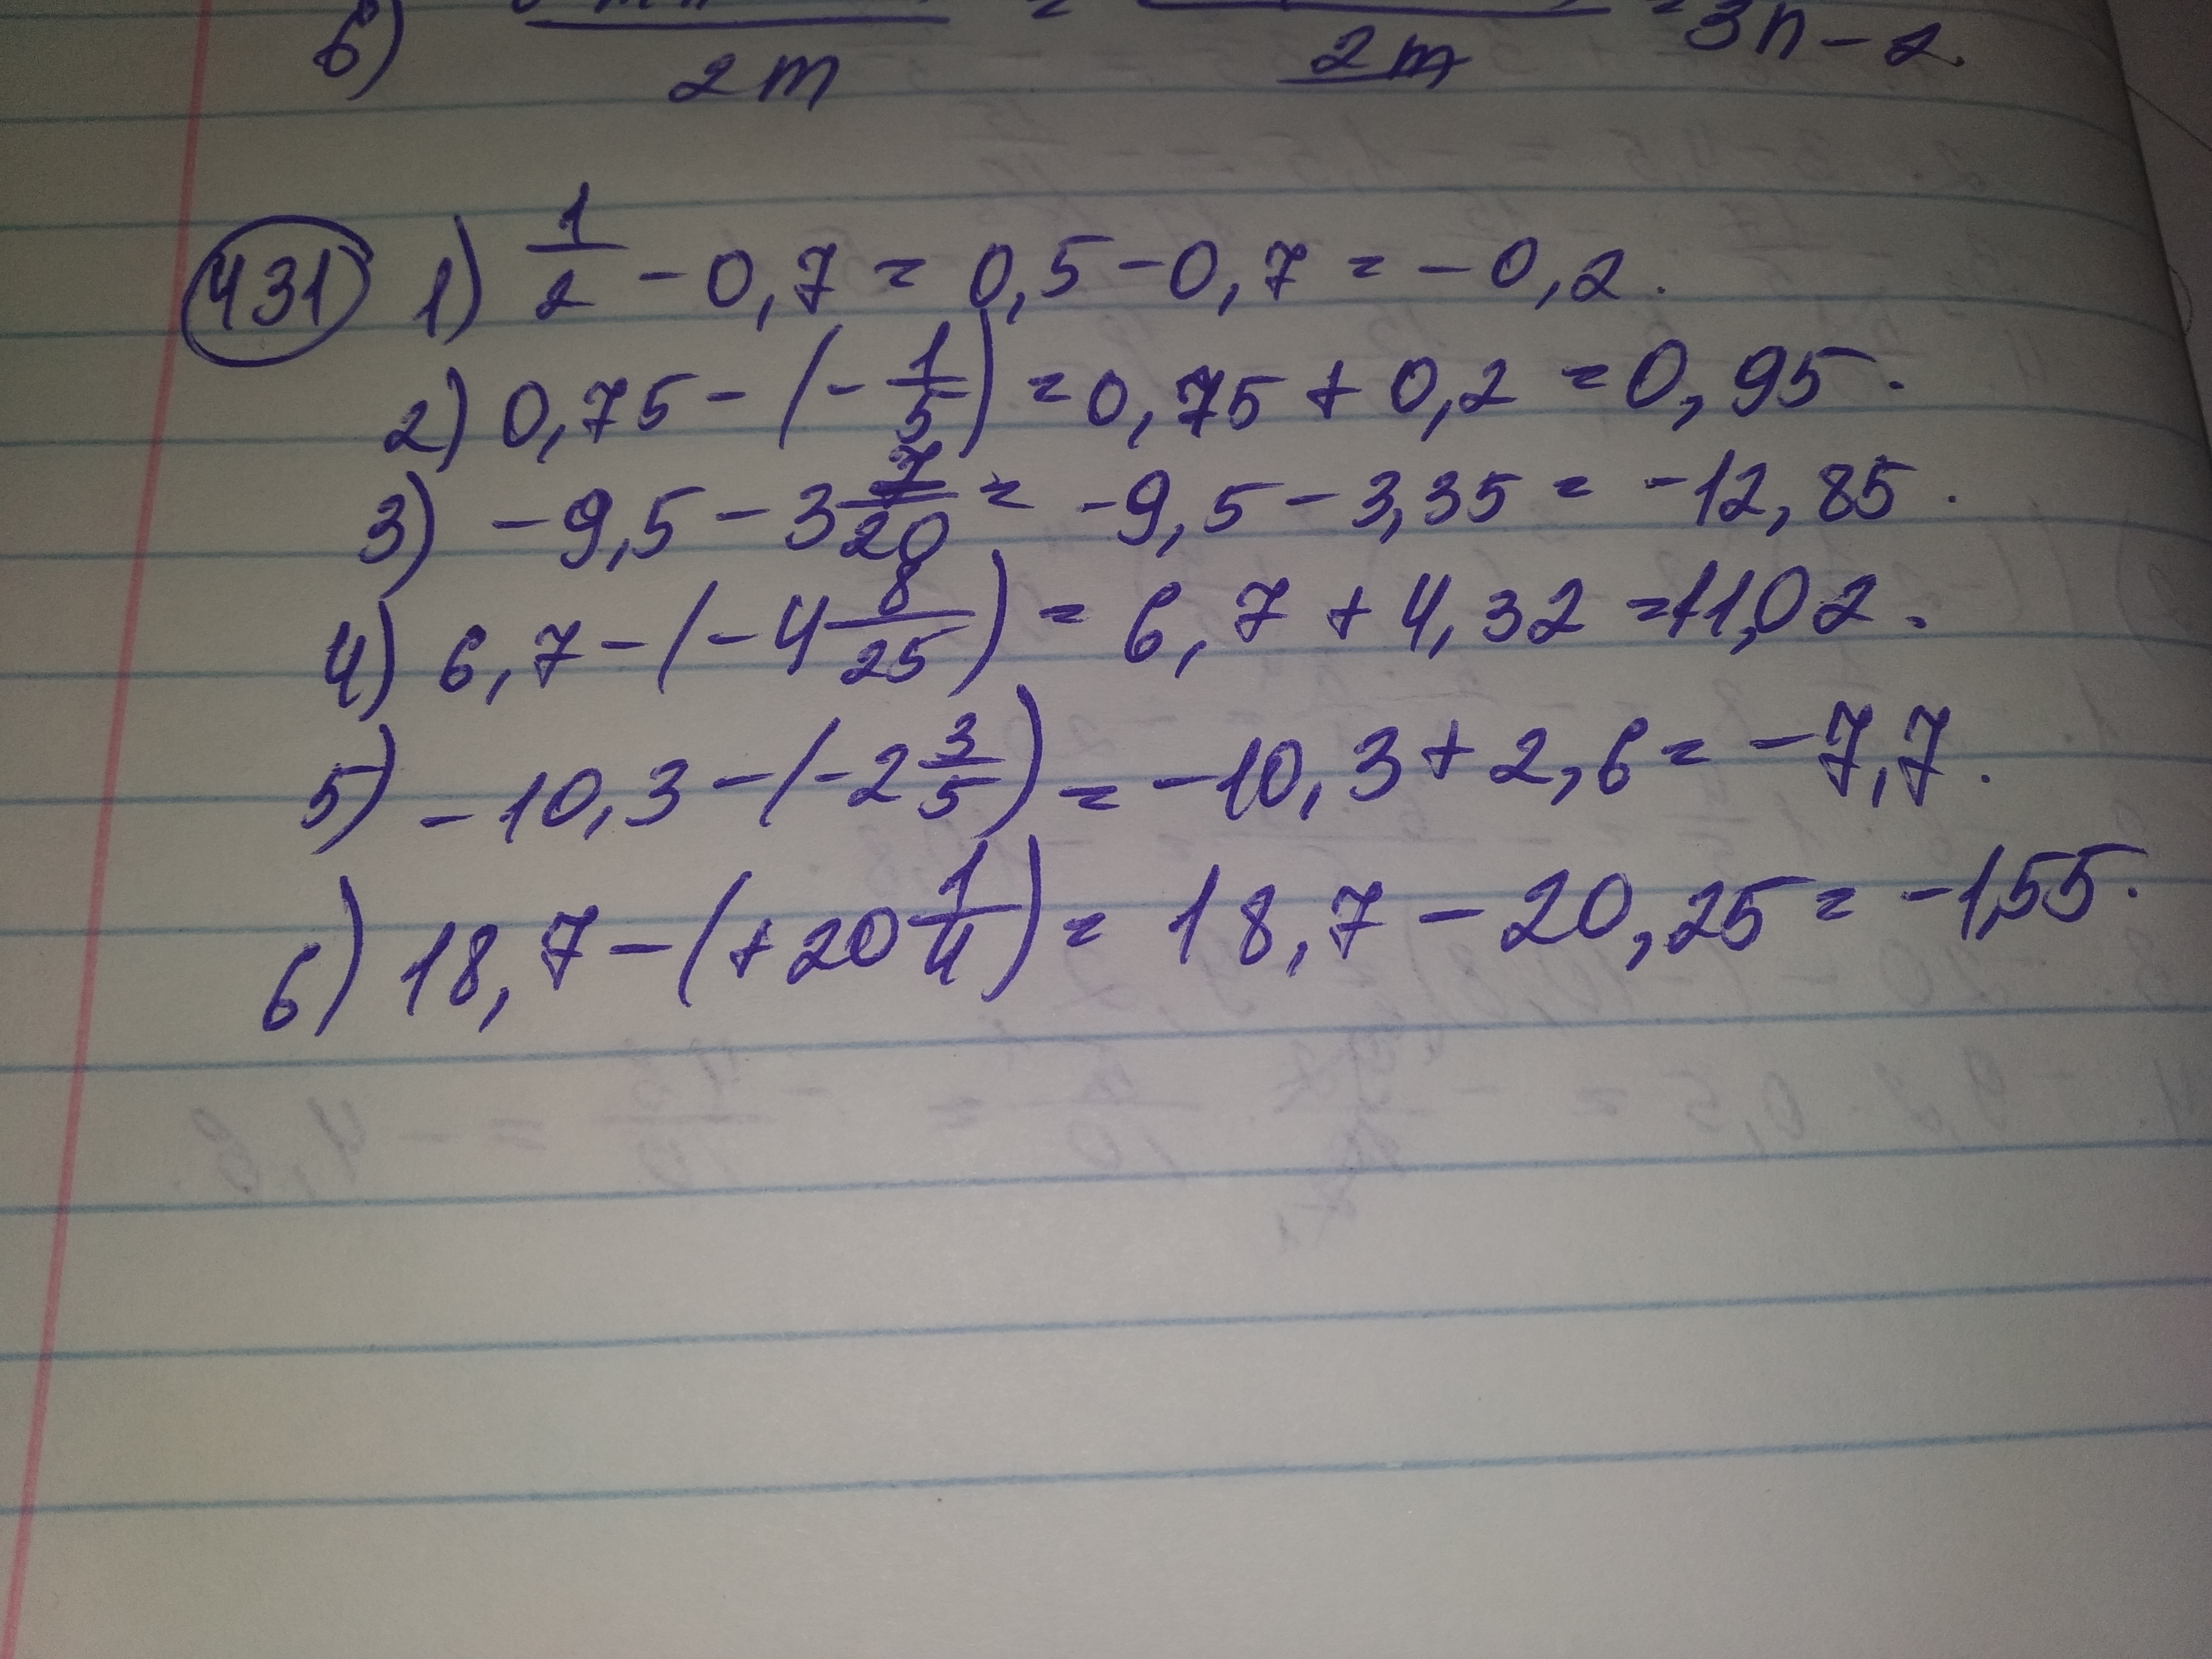 б) / 2m = / 2m = 3n - 2.
431 1) 1/2 - 0,7 = 0,5 - 0,7 = -0,2.
2) 0,75 - (-1/5) = 0,75 + 0,2 = 0,95.
3) -9,5 - 3 7/20 = -9,5 - 3,35 = -12,85.
4) 6,7 - (-4 8/25) = 6,7 + 4,32 = 11,02.
5) -10,3 - (-2 3/5) = -10,3 + 2,6 = -7,7.
6) 18,7 - (+20 1/4) = 18,7 - 20,25 = -1,55.